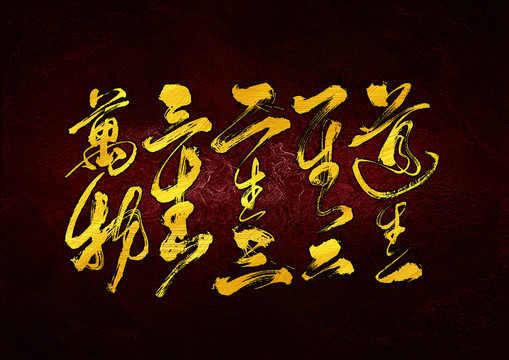 道生一
一生二
二生三
三生
萬物